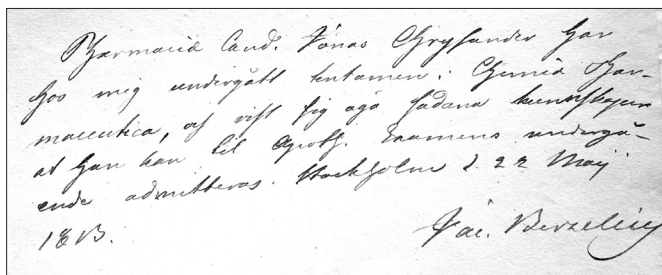 Pharmaciæ Cand. Jonas Chrysander har
hos mig undergått tentamen i Chemia Phar-
maceutica, och vist sig äga sådana kunnskaper
at han kan til Apoth. Examens undergå-
ende admitteras. Stockholm d. 22 Maij
1813.
Jac. Berzelius